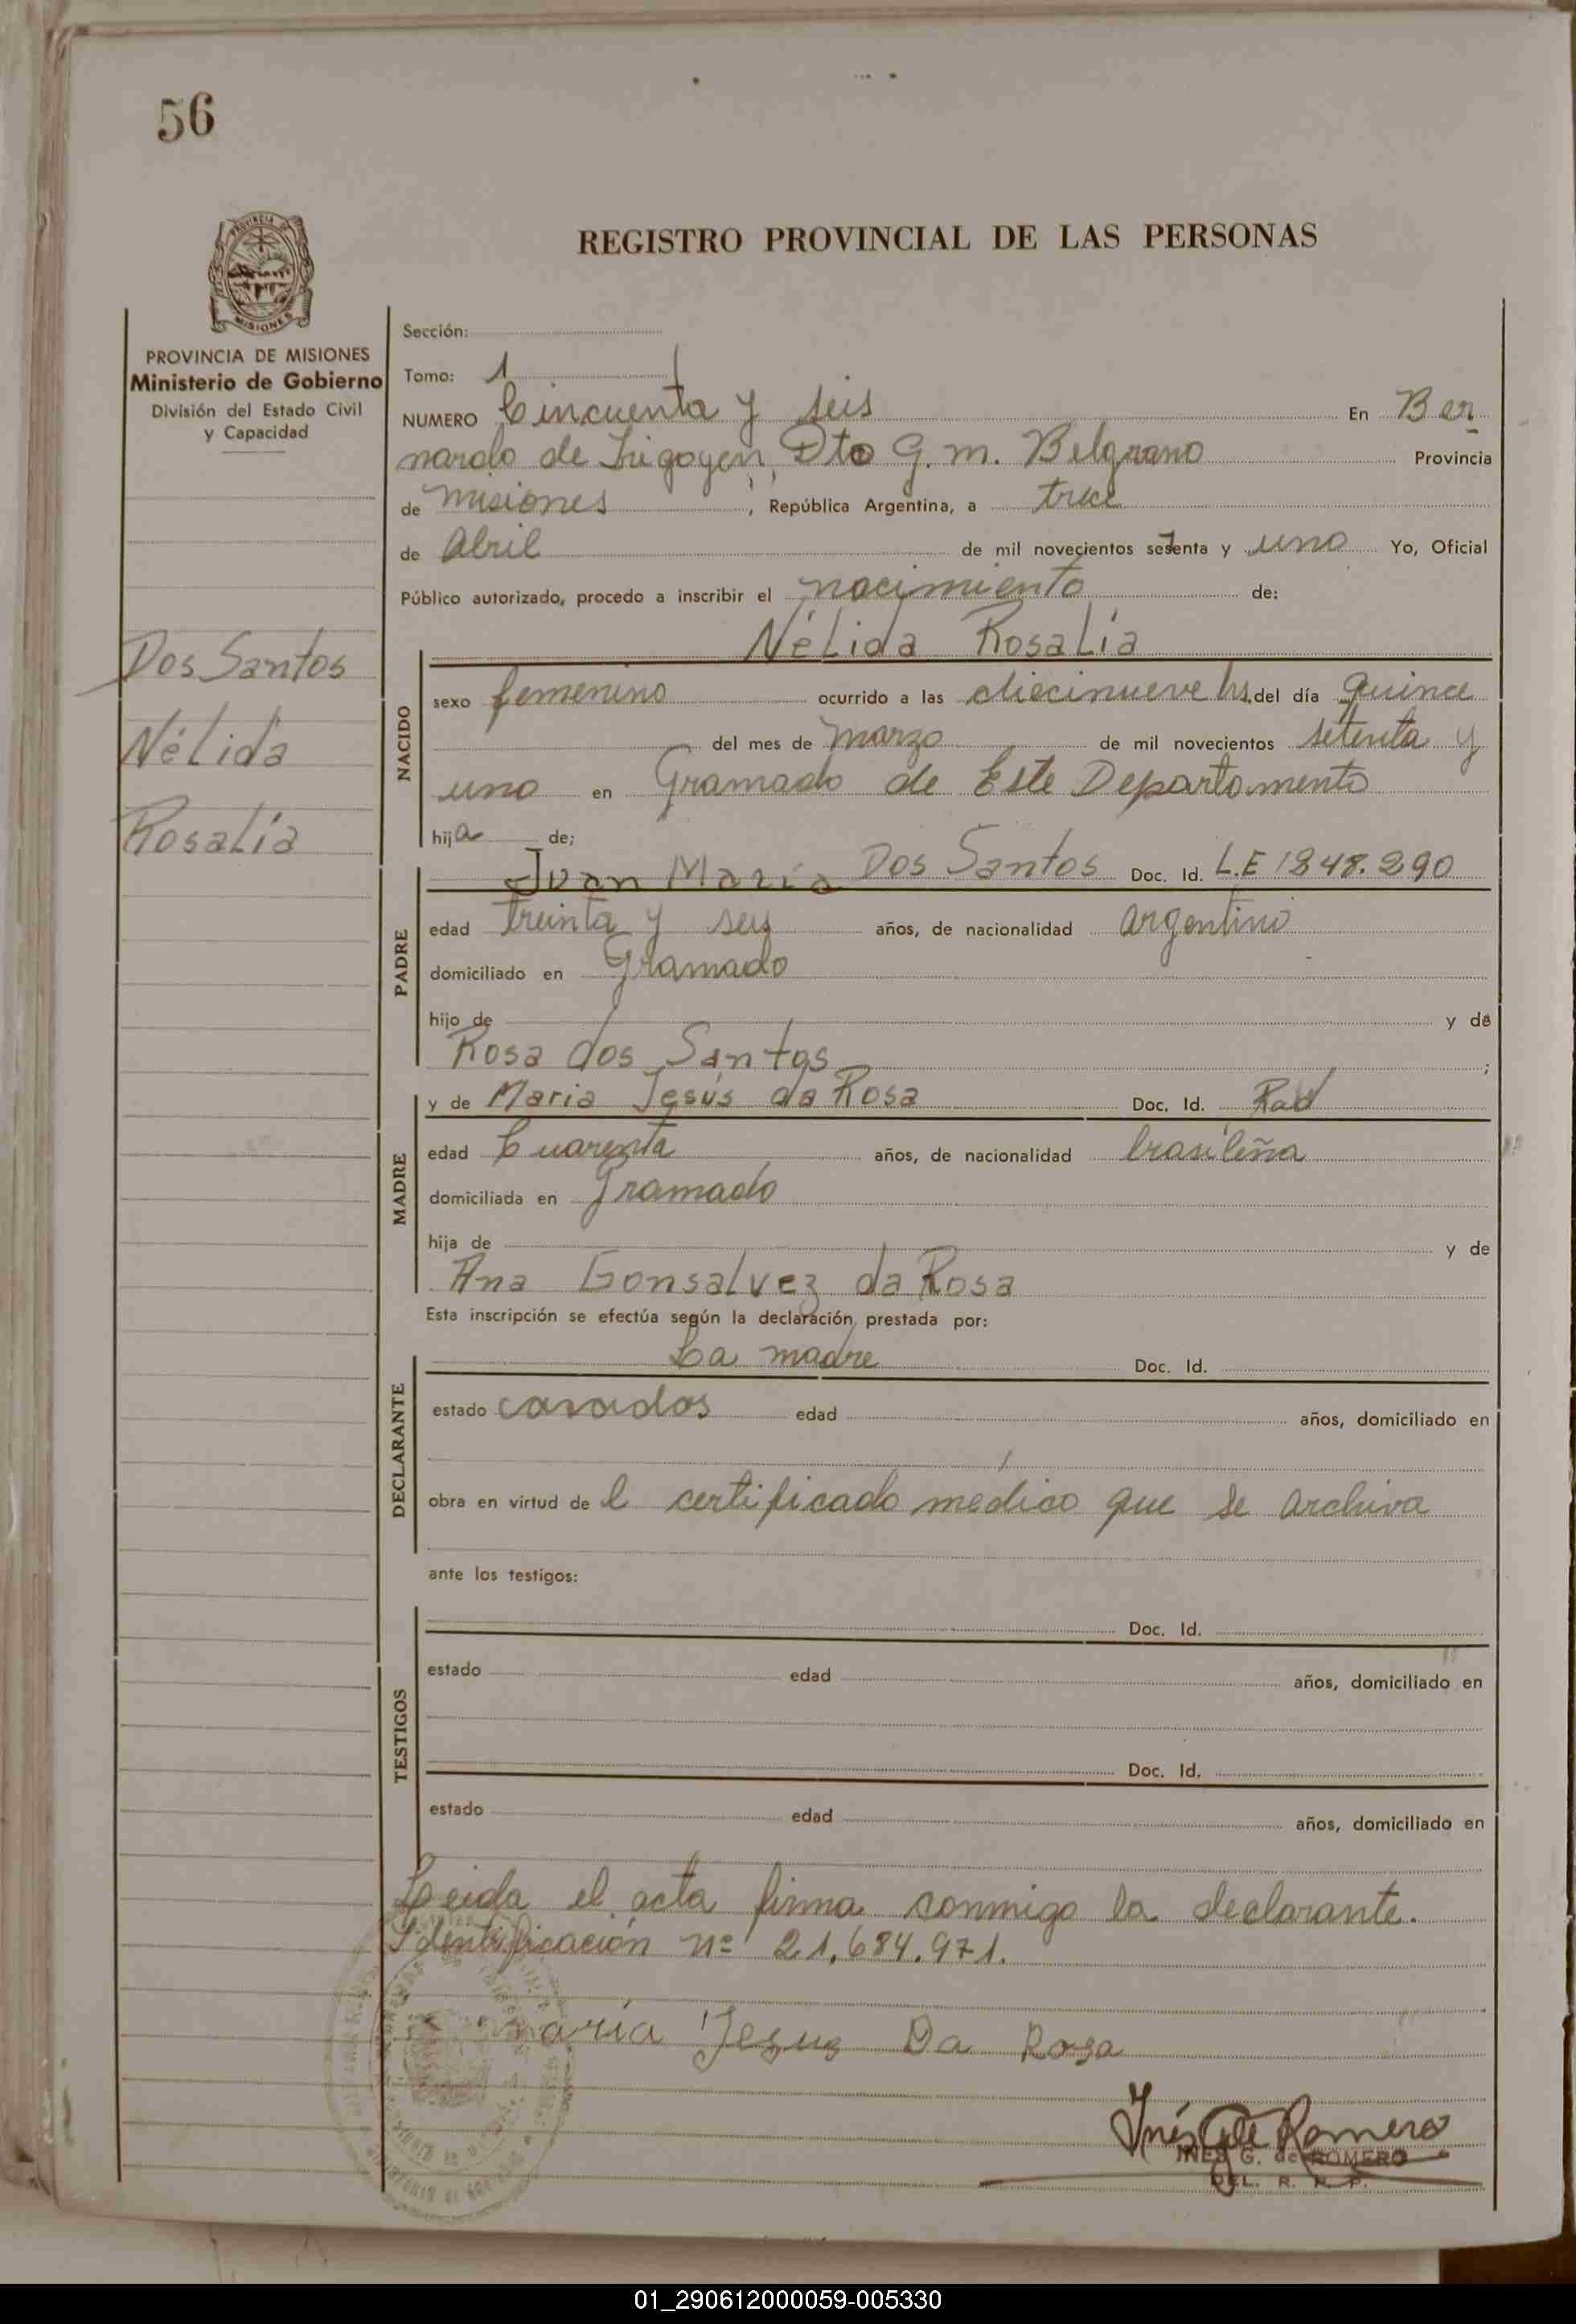 56
PROVINCIA DE MISIONES
Ministerio de Gobierno
División del Estado Civil
y Capacidad
Dos Santos
Nélida
Rosalía
REGISTRO PROVINCIAL DE LAS PERSONAS
Sección:
Tomo: 1
NUMERO Cincuenta y seis En Ber
nardo de Irigoyen, Dto G. M. Belgrano Provincia
de Misiones, República Argentina, a trece
de Abril de mil novecientos setenta y uno Yo, Oficial
Público autorizado, procedo a inscribir el nacimiento de:
Nélida Rosalía
NACIDO
sexo femenino ocurrido a las diecinueve hs. del día quince
del mes de Marzo de mil novecientos setenta y
uno en Gramado de Este Departamento
hija de;
Juan María Dos Santos Doc. Id. L.E 1248.290
PADRE
edad treinta y seis años, de nacionalidad argentino
domiciliado en Gramado
hijo de y de
Rosa dos Santos ;
y de Maria Jesús da Rosa Doc. Id. Rad
MADRE
edad Cuarenta años, de nacionalidad brasileña
domiciliada en Gramado
hija de y de
Ana Gonsalvez da Rosa
Esta inscripción se efectúa según la declaración prestada por:
La madre Doc. Id.
DECLARANTE
estado casados edad años, domiciliado en
obra en virtud de l certificado médico que se archiva
ante los testigos:
Doc. Id.
TESTIGOS
estado edad años, domiciliado en
Doc. Id.
estado edad años, domiciliado en
Leida el acta firma conmigo la declarante.
Identificación nº 21.684.971.
María Jesus Da Rosa
Inés G de Romero
INES G. de ROMERO
DEL. R. P. P.
01_290612000059-005330